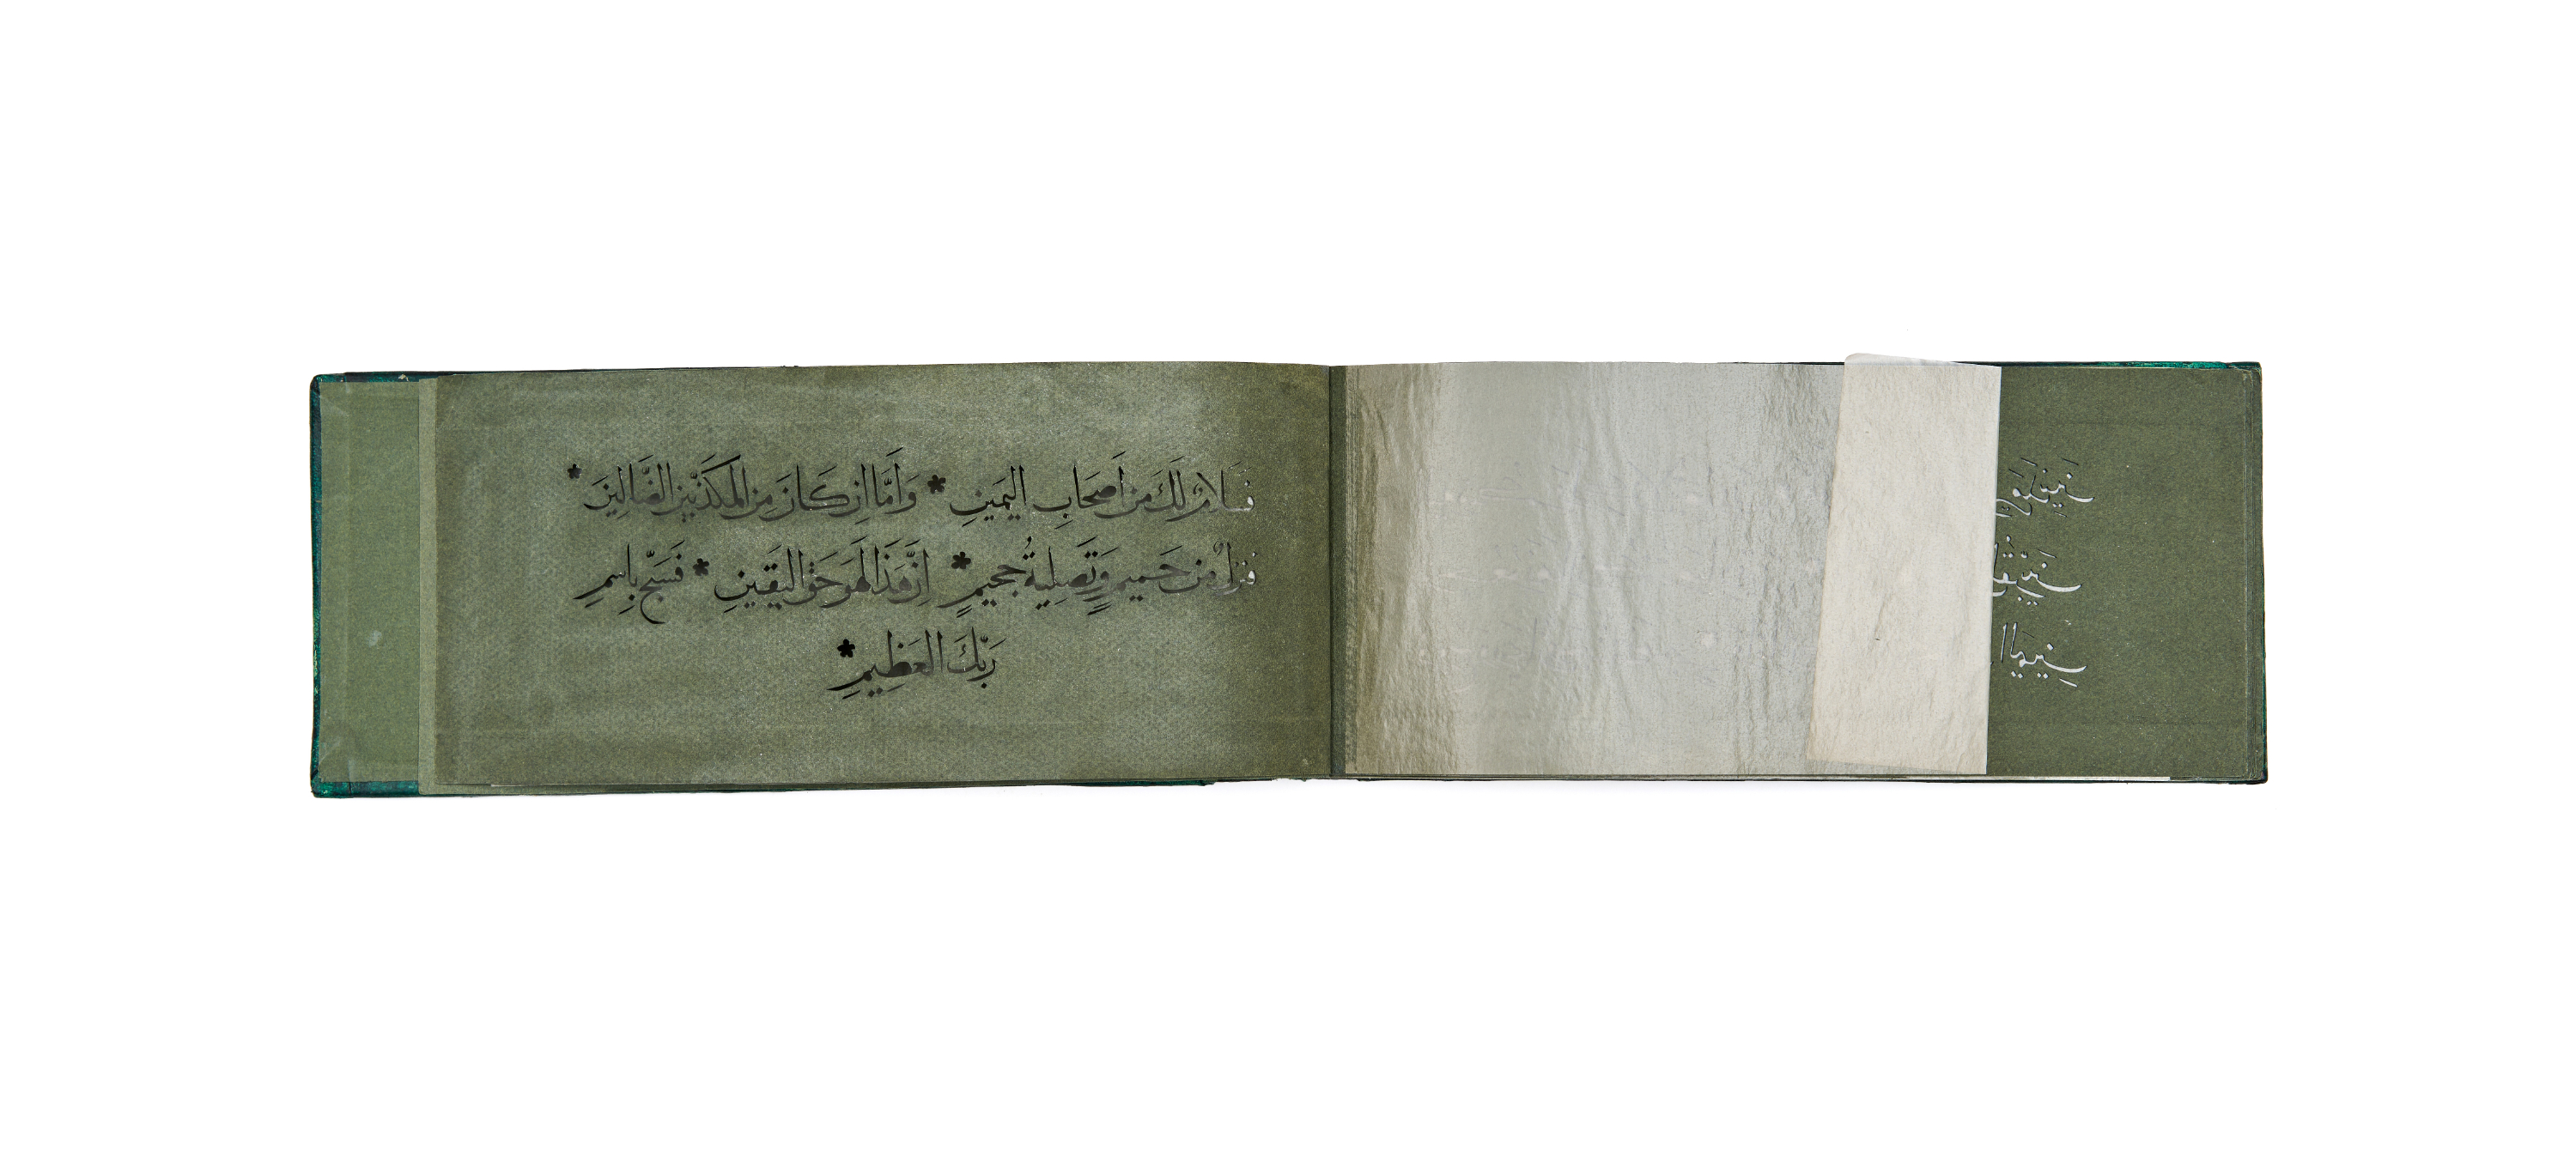 فَسَلَامٌ لَكَ مِنْ أَصْحَابِ الْيَمِينِ * وَأَمَّا إِنْ كَانَ مِنَ الْمُكَذِّبِينَ الضَّالِّينَ *
فَنُزُلٌ مِنْ حَمِيمٍ وَتَصْلِيَةُ جَحِيمٍ * إِنَّ هَذَا لَهُوَ حَقُّ الْيَقِينِ * فَسَبِّحْ بِاسْمِ
رَبِّكَ الْعَظِيمِ *